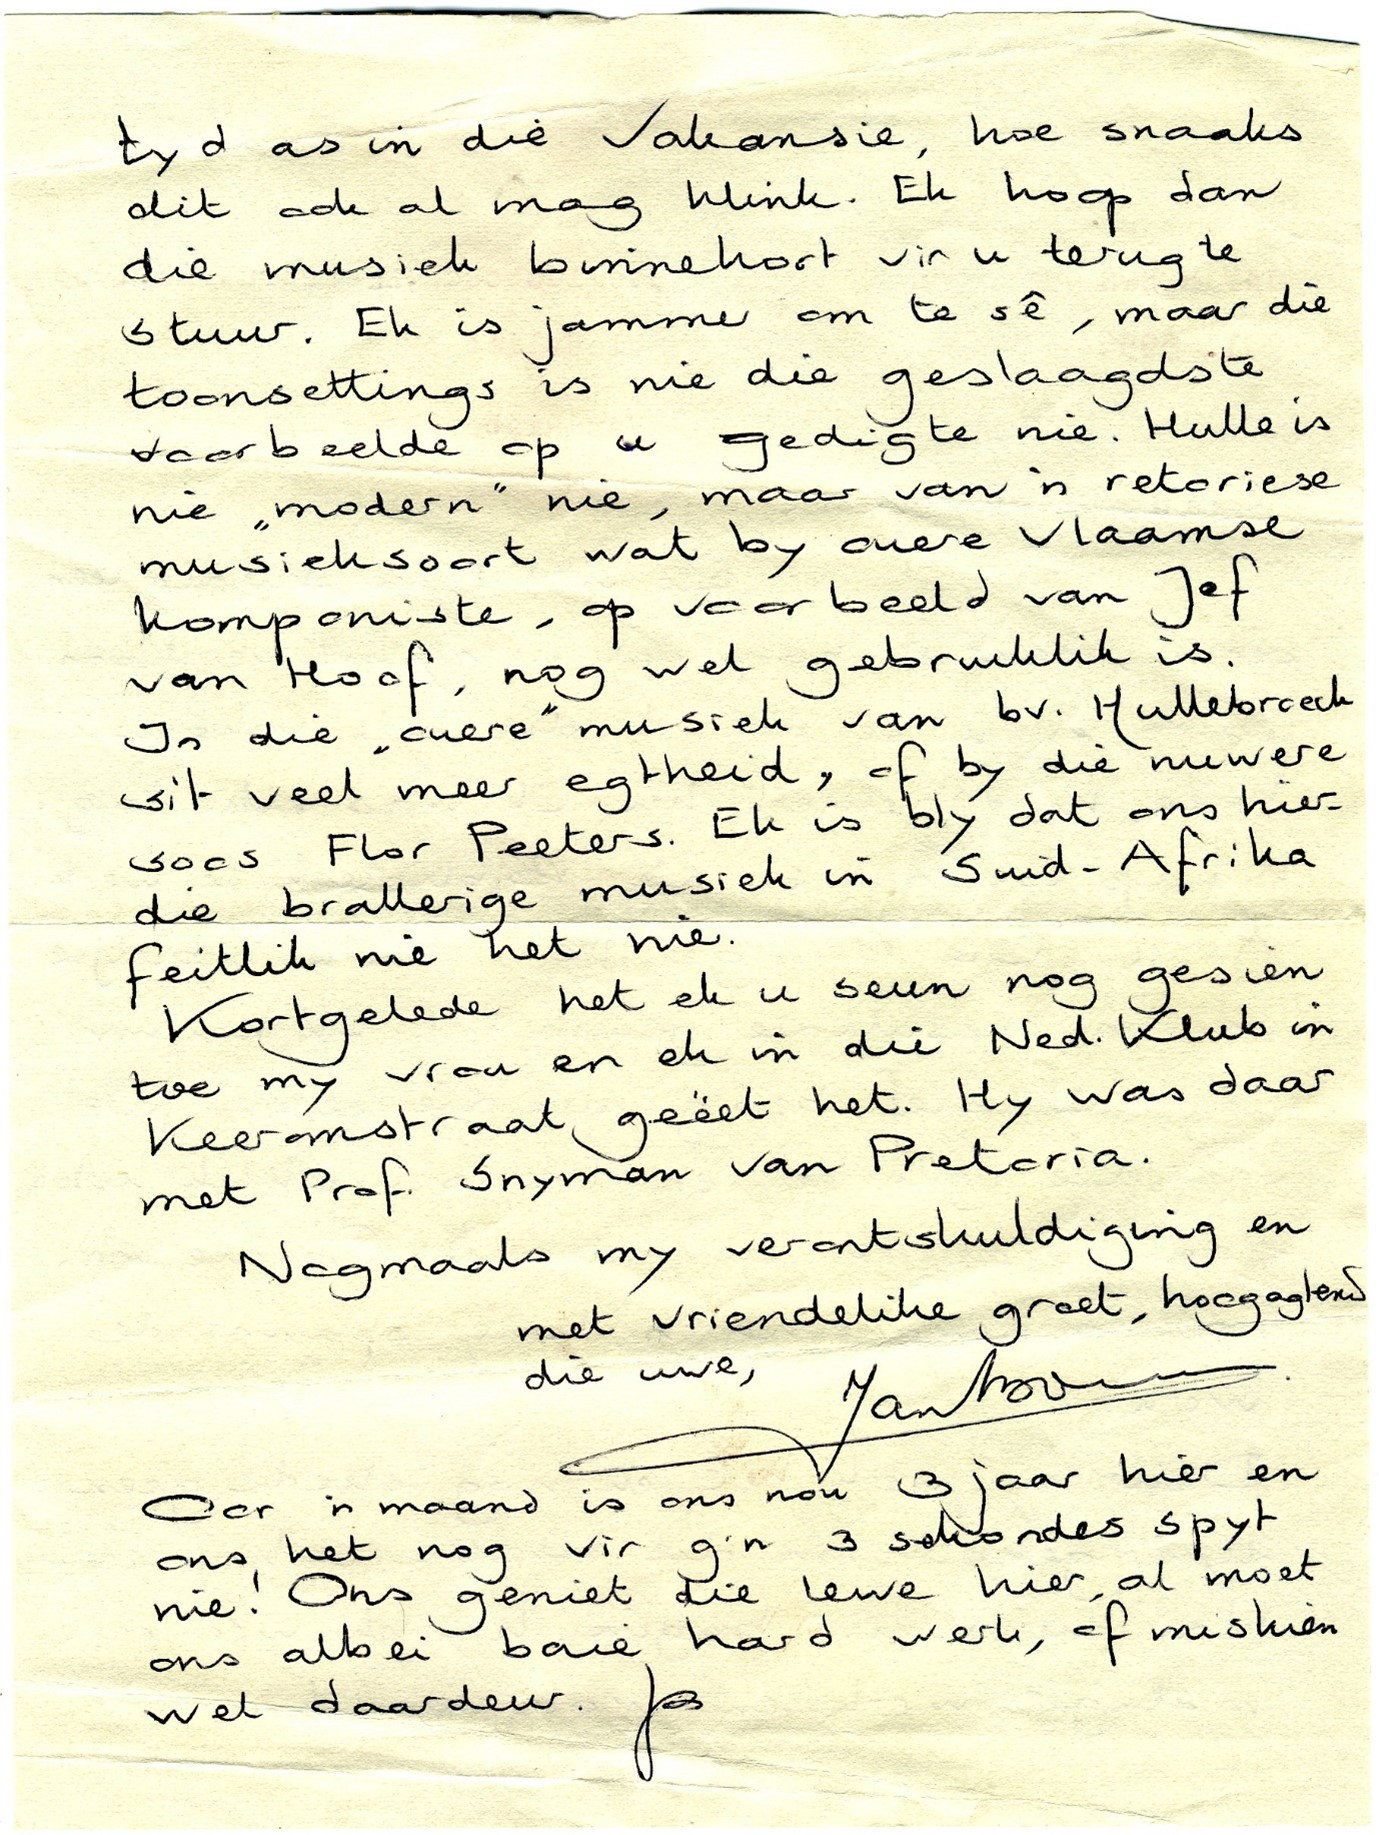 tyd as in die vakansie, hoe snaaks
dit ook al mag klink. Ek hoop dan
die musiek binnekort vir u terug te
stuur. Ek is jammer om te sê, maar die
toonsettings is nie die geslaagdste
voorbeelde op u gedigte nie. Hulle is
nie „modern” nie, maar van 'n retoriese
musieksoort wat by ouere Vlaamse
komponiste, op voorbeeld van Jef
van Hoof, nog wel gebruiklik is.
In die „ouere” musiek van bv. Hullebroeck
sit veel meer egtheid, of by die nuwere
soos Flor Peeters. Ek is bly dat ons hier-
die brallerige musiek in Suid-Afrika
feitlik nie het nie.
Kortgelede het ek u seun nog gesien
toe my vrou en ek in die Ned. Klub in
Keeromstraat geëet het. Hy was daar
met Prof. Snyman van Pretoria.
Nogmaals my verontskuldiging en
met vriendelike groet, hoogagtend
die uwe,
Jan
Oor 'n maand is ons nou 3 jaar hier en
ons het nog vir g'n 3 sekondes spyt
nie! Ons geniet die lewe hier, al moet
ons albei baie hard werk, of miskien
wel daardeur.